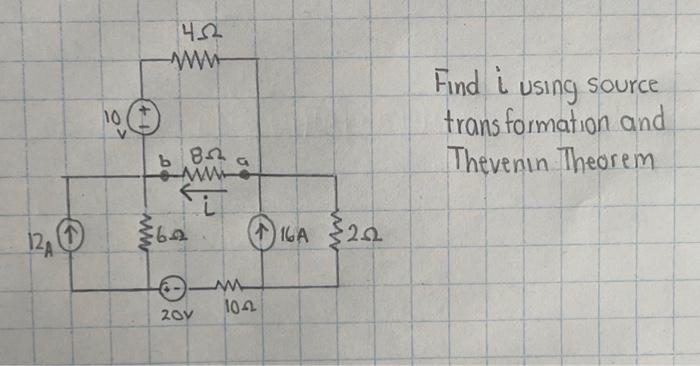 4Ω
10 V
+
−
b 8Ω a
i
12A
6Ω
16A
2Ω
+ -
20V
10Ω
Find i using source
transformation and
Thevenin Theorem